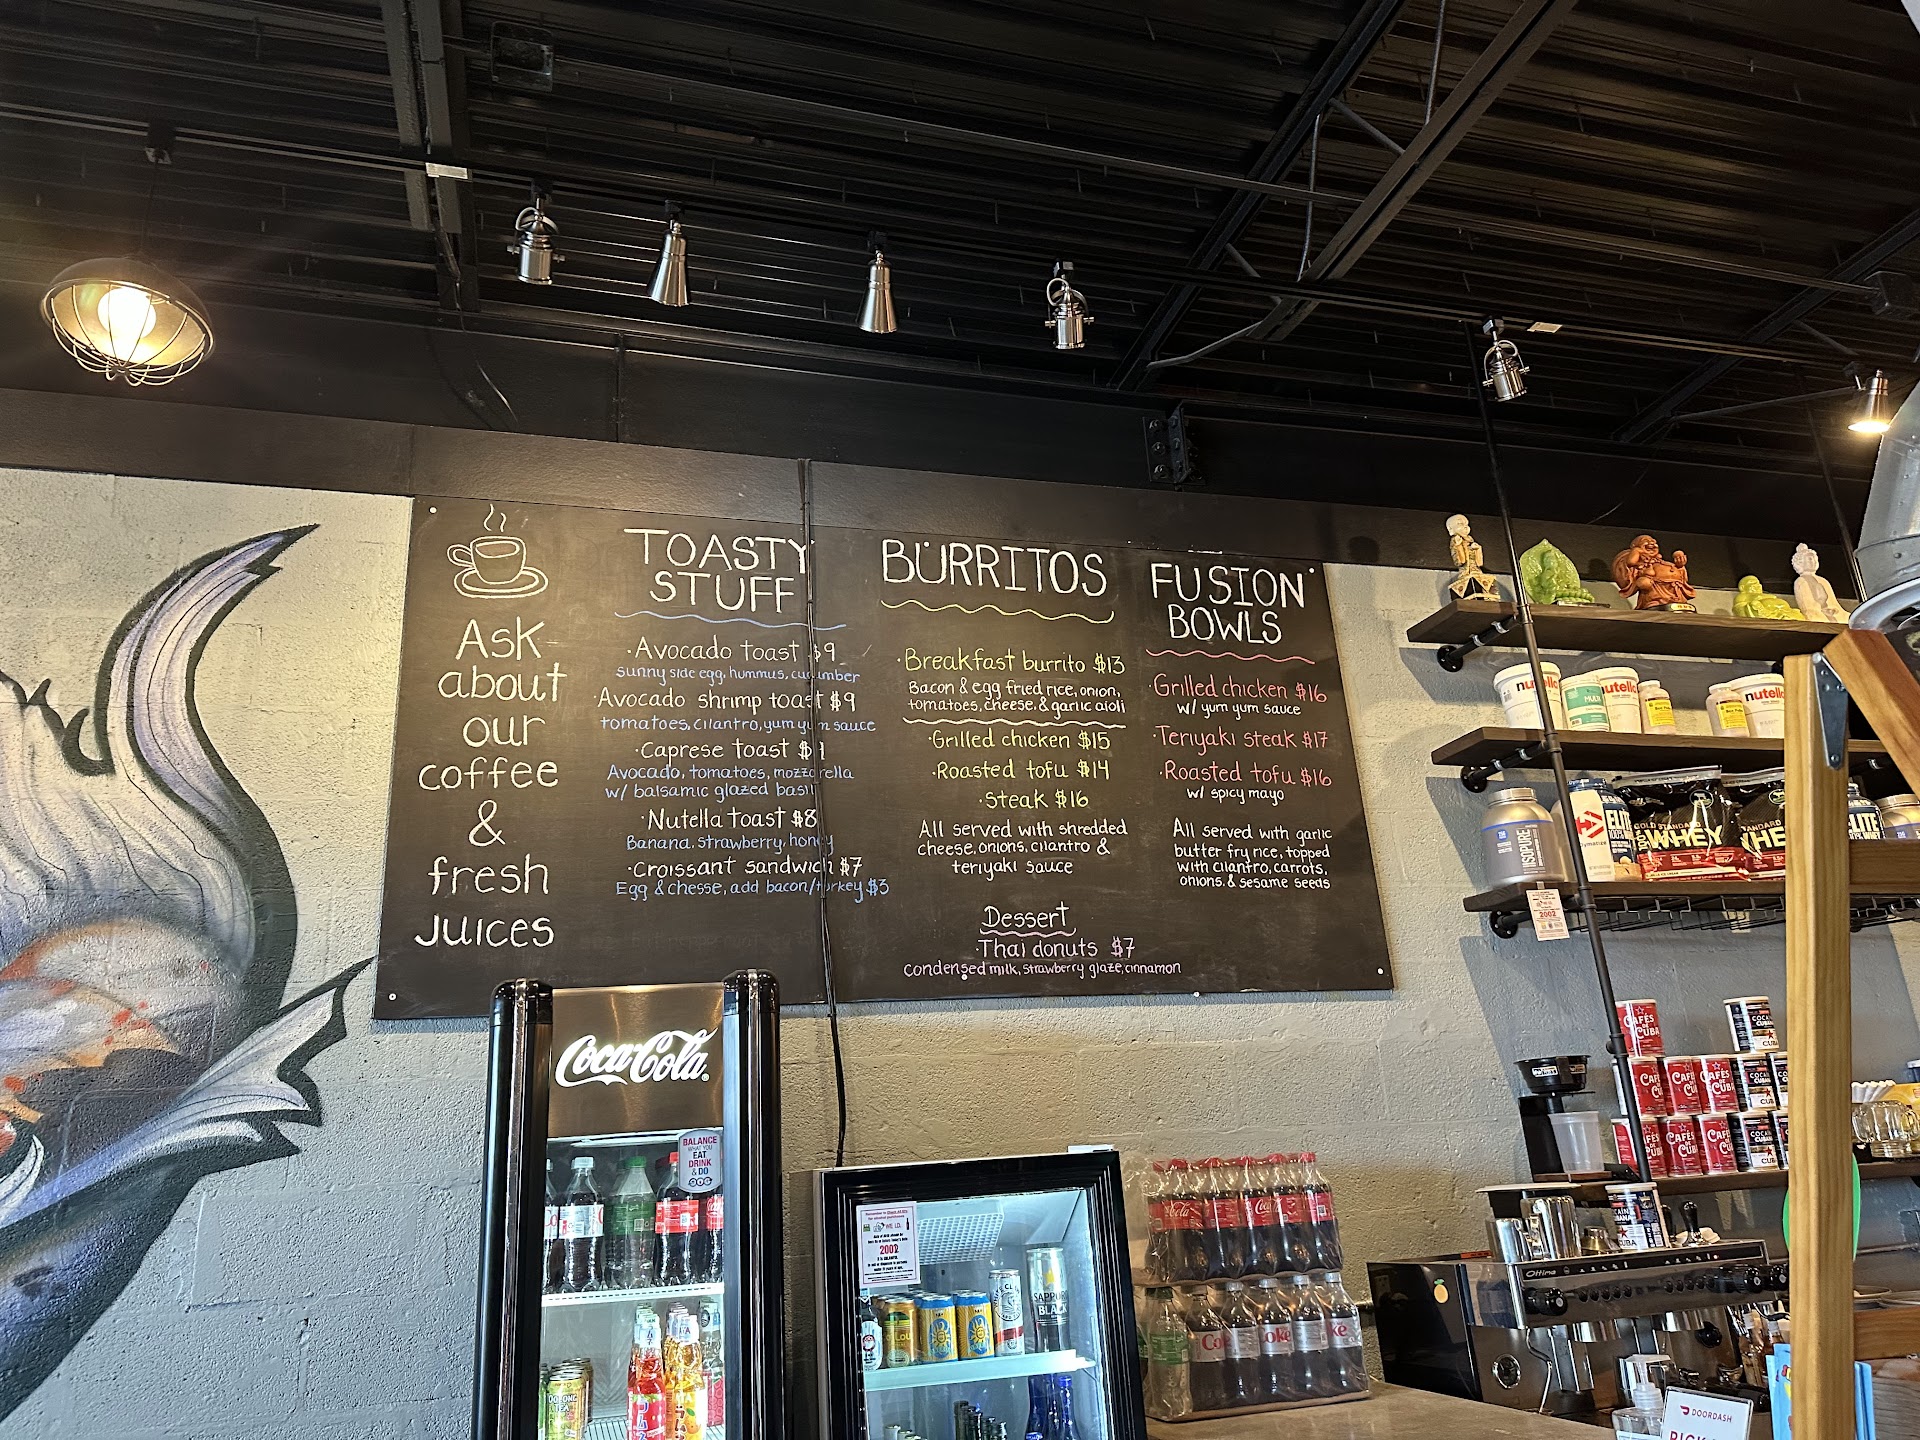 Ask
about
our
coffee
&
fresh
juices
TOASTY
STUFF
·Avocado toast $9
sunny side egg, hummus, cucumber
·Avocado shrimp toast $9
tomatoes, cilantro, yum yum sauce
·Caprese toast
Avocado, tomatoes, mozzarella
w/ balsamic glazed basil
·Nutella toast $8
Banana, strawberry, honey
·Croissant sandwich $7
Egg & chesse, add bacon/turkey $3
BURRITOS
·Breakfast burrito $13
Bacon & egg fried rice, onion,
tomatoes, cheese, & garlic aioli
·Grilled chicken $15
·Roasted tofu $14
·Steak $16
All served with shredded
cheese, onions, cilantro &
teriyaki sauce
Dessert
·Thai donuts $7
condensed milk, strawberry glaze, cinnamon
FUSION
BOWLS
·Grilled chicken $16
w/ yum yum sauce
·Teriyaki steak $17
·Roasted tofu $16
w/ spicy mayo
All served with garlic
butter fry rice, topped
with cilantro, carrots,
onions, & sesame seeds
Coca-Cola
BALANCE
WHAT YOU
EAT
DRINK
& DO
WE I.D.
2002
SAPPORO
BLACK
nutella
nutella
ISOPURE
ELITE
GOLD STANDARD
WHEY
2002
CAFÉS
DE
CUBA
Ottima
DOORDASH